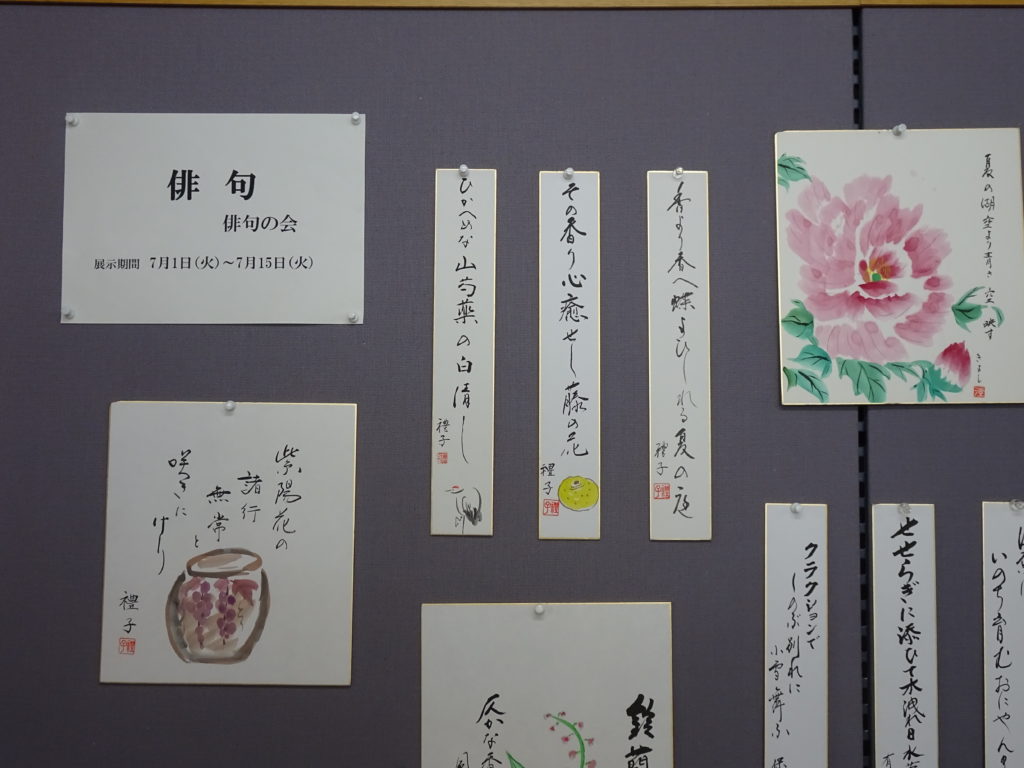 俳句
俳句の会
展示期間 7月1日(火)~7月15日(火)
ひかへめな山芍薬の白清し
禮子
その香り心癒せし藤の花
禮子
香より香へ蝶よひしれる夏の庭
禮子
夏の湖空より青き空映す
きよし
紫陽花の
諸行
無常と
咲きに
けり
禮子
鈴蘭
仄かな香
風
クラクションで
しのぶ別れに
小雪舞ふ
せせらぎに添ひて木洩れ日水
いのち育む